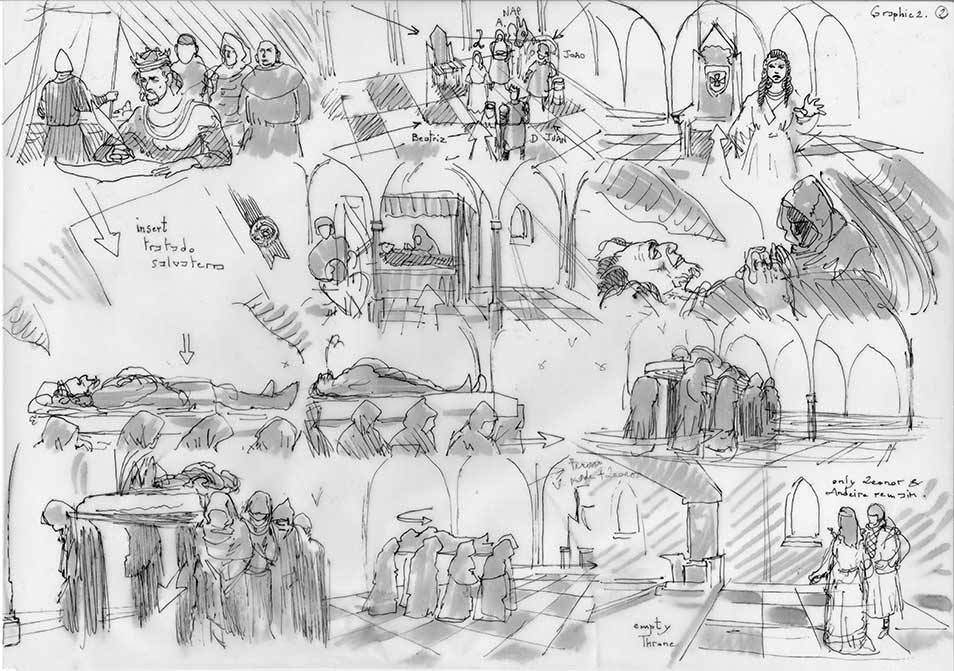 Graphic 2. 2
NAP
A.
João
Beatriz
D Juan
insert
tratado
salvaterra
only Leonor &
Andeiro remain.
empty
Throne